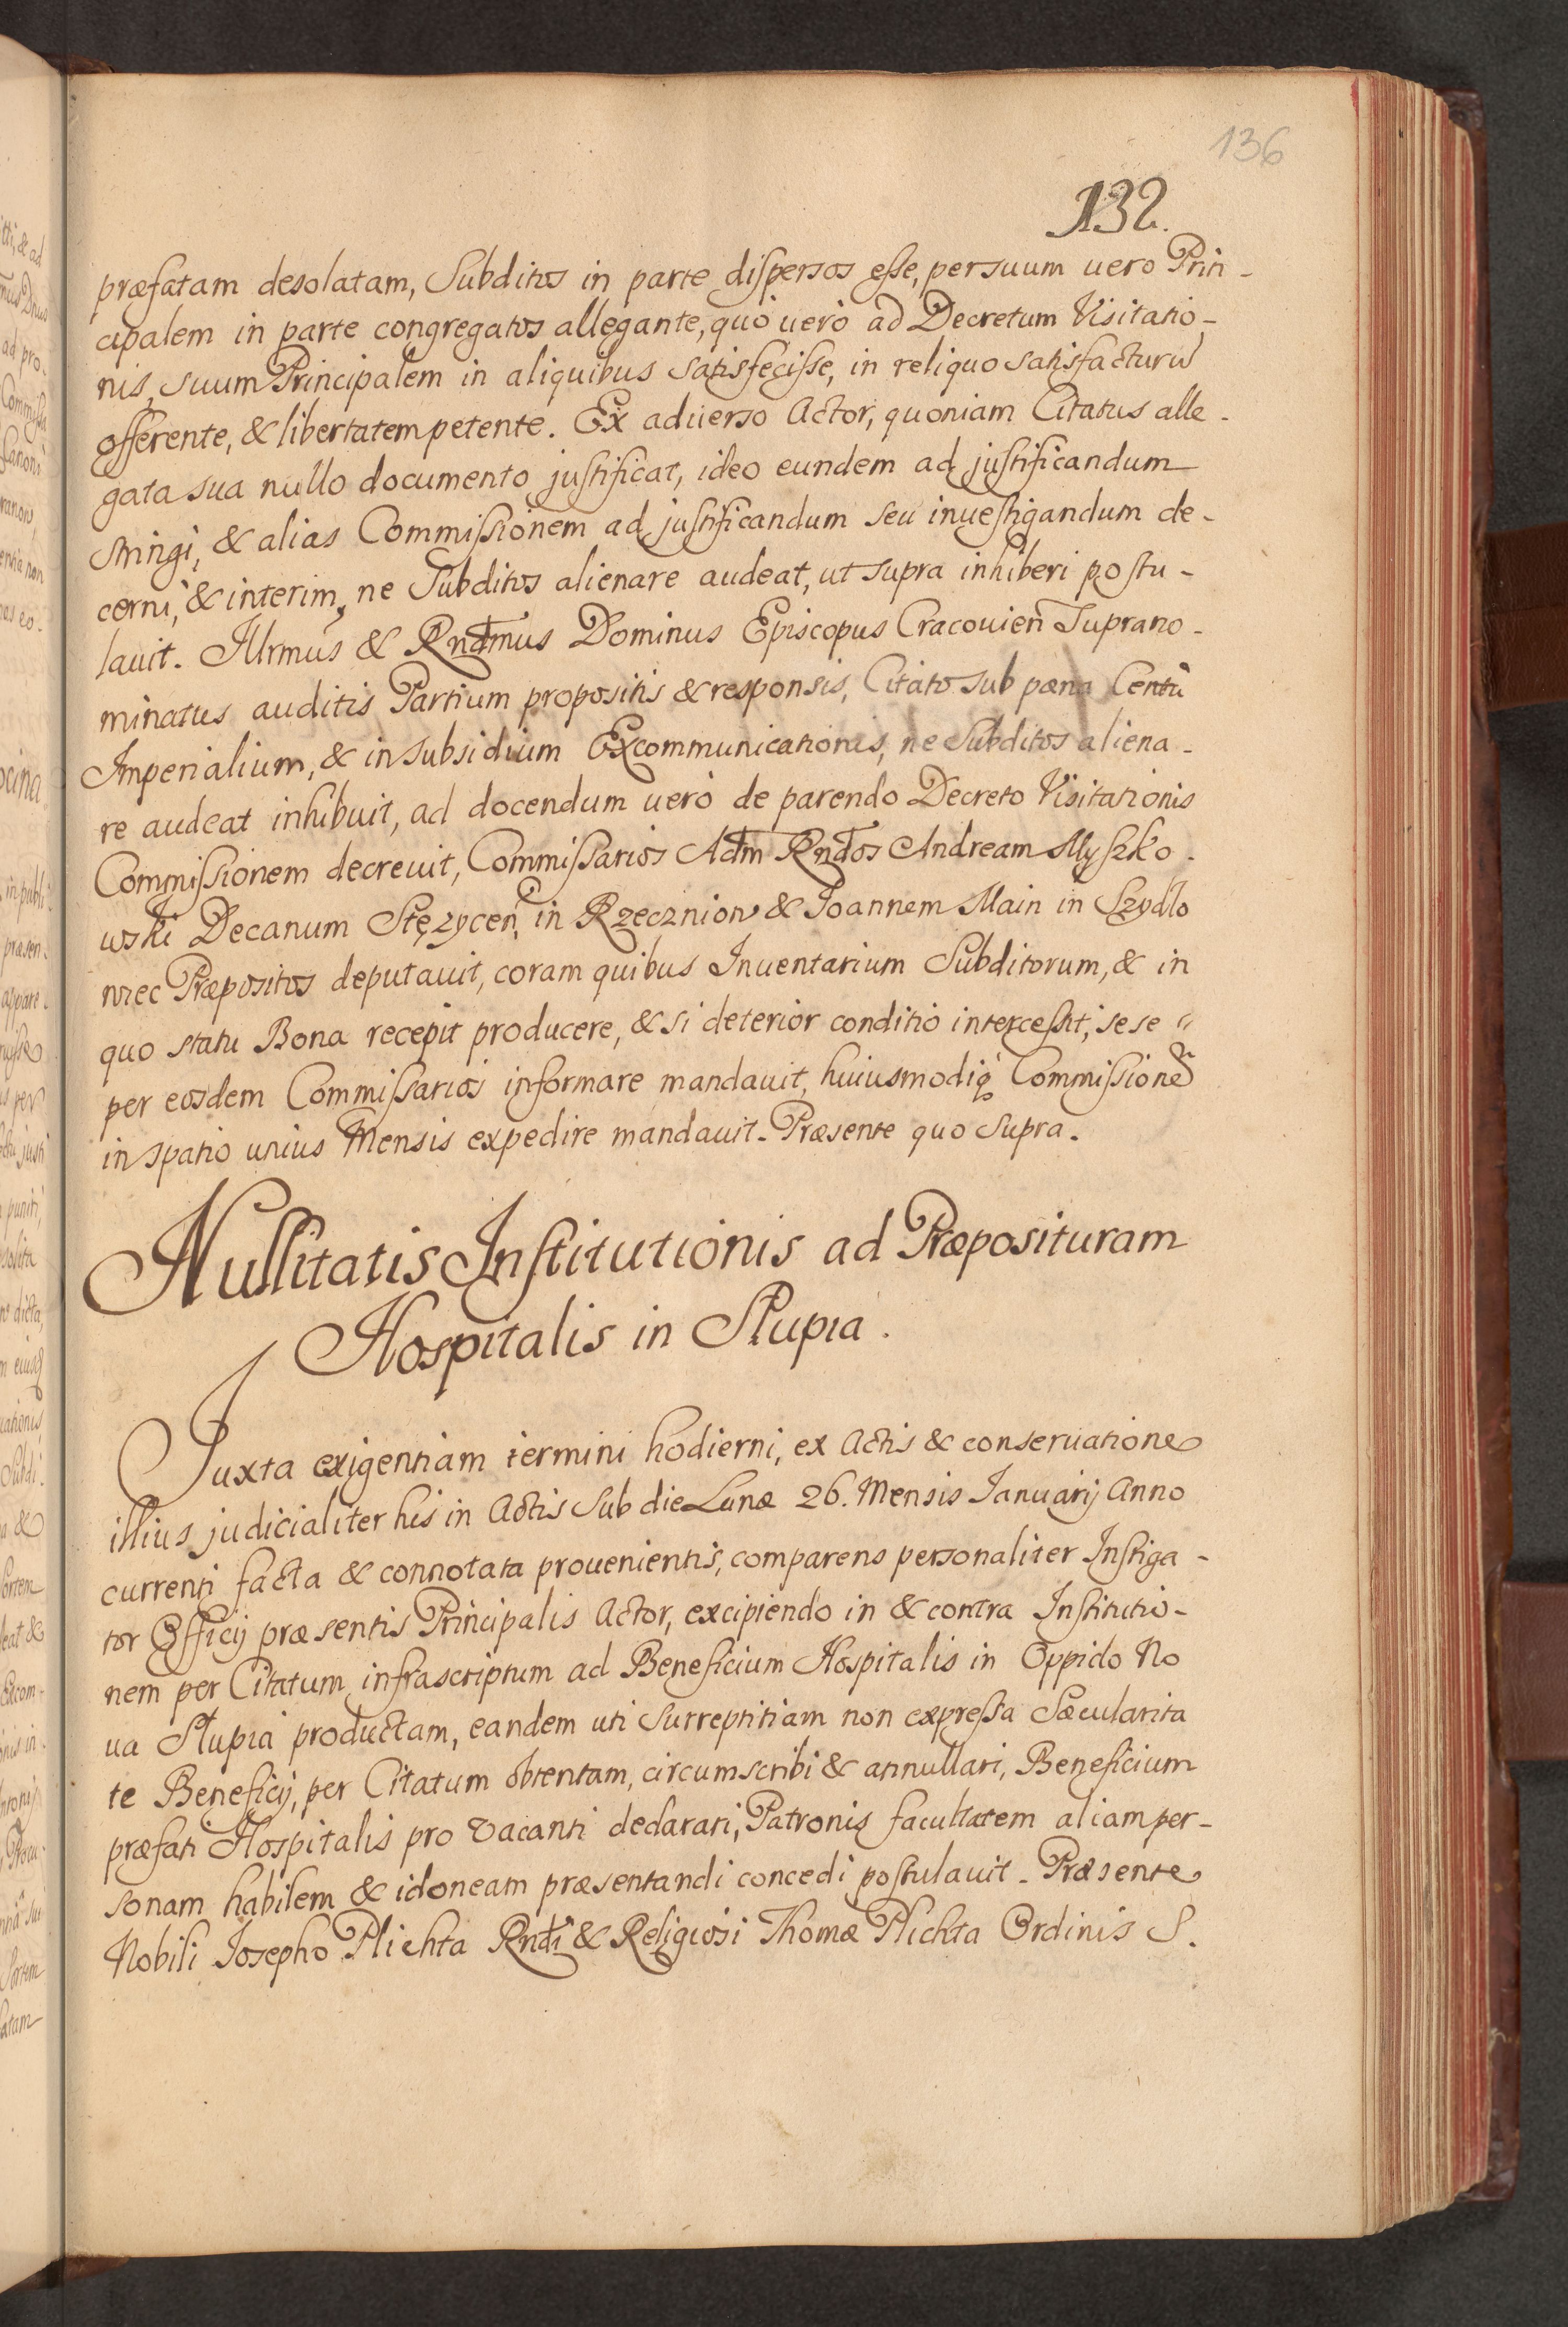 136
132.
præfatam desolatam, Subditos in parte dispersos esse, per suum uero Prin-
cipalem in parte congregatos allegante, quò uerò ad Decretum Visitatio-
nis, suum Principalem in aliquibus satisfecisse, in reliquo satisfacturũ
offerente, & libertatem petente. Ex aduerso Actor, quoniam Citatus alle-
gata sua nullo documento justificat, ideo eundem ad justificandum
stringi, & alias Commissionem ad justificandum seu inuestigandum de-
cerni, & interim, ne Subditos alienare audeat, ut supra inhiberi postu-
lauit. Illrmus & Rndmus Dominus Episcopus Cracouień Suprano-
minatus auditis Partium propositis & responsis, Citato sub pœna Centũ
Imperialium, & in subsidium Excommunicationis, ne Subditos aliena-
re audeat inhibuit, ad docendum uerò de parendo Decreto Visitationis
Commissionem decreuit, Commissarios Adm Rndos Andream Myszko-
wski Decanum Stężyceń, in Rzecznion & Joannem Main in Szydło
wiec Præpositos deputauit, coram quibus Inuentarium Subditorum, & in
quo statu Bona recepit producere, & si deterior conditio intercessit, sese
per eosdem Commissarios informare mandauit, huiusmodiq̃ Commissionẽ
in spatio unius Mensis expedire mandauit. Præsente quo supra.
Nullitatis Institutionis ad Præposituram
Hospitalis in Słupia.
Juxta exigentiam termini hodierni, ex Actis & conseruatione
illius judicialiter his in Actis sub die Lunæ 26. Mensis Januarij Anno
currenti facta & connotata prouenientis, comparens personaliter Instiga-
tor Officij præsentis Principalis Actor, excipiendo in & contra Institutio-
nem per Citatum infrascriptum ad Beneficium Hospitalis in Oppido No
ua Słupia productam, eandem uti surreptitiam non expressa Sæcularita
te Beneficij, per Citatum obtentam, circumscribi & annullari, Beneficium
præfati Hospitalis pro vacanti declarari, Patronis facultatem aliam per-
sonam habilem & idoneam præsentandi concedi postulauit. Præsente
Nobili Josepho Plichta Rndi & Religiosi Thomæ Plichta Ordinis S.